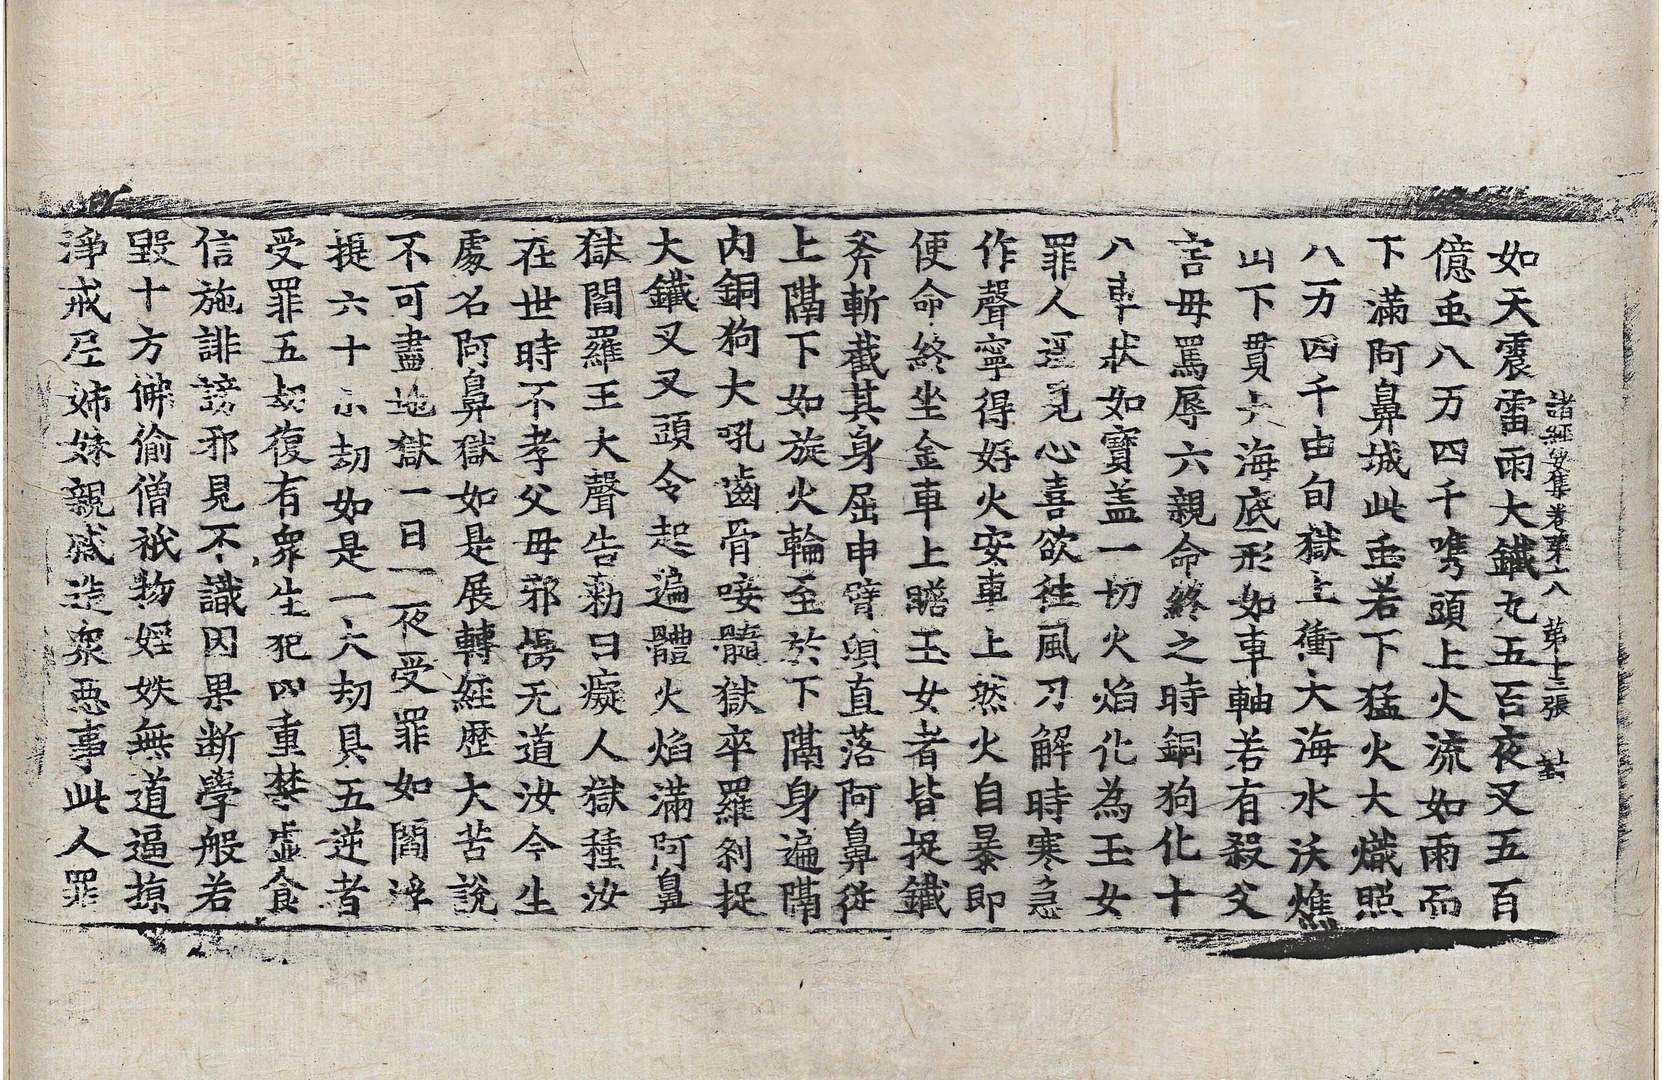 諸經要集卷第十八 第十三張
如天震雷雨大鐵丸五百夜叉五百
億䖝八万四千㭰頭上火流如雨而
下滿阿鼻城此䖝若下猛火大熾照
八万四千由旬獄上衝大海水沃燋
山下貫大海底形如車軸若有殺父
害母罵辱六親命終之時銅狗化十
八車狀如寶盖一切火焰化為玉女
罪人遥見心喜欲徃風刀解時寒急
作聲寧得好火安車上然火自暴即
便命終坐金車上瞻玉女者皆捉鐵
斧斬截其身屈申臂頃直落阿鼻從
上隔下如旋火輪至於下隔身遍隔
内銅狗大吼齒骨唼髓獄卒羅剎捉
大鐵叉叉頭令起遍體火焰滿阿鼻
獄閻羅王大聲告勑曰癡人獄種汝
在世時不孝父母邪慢无道汝今生
處名阿鼻獄如是展轉經歷大苦說
不可盡地獄一日一夜受罪如閻浮
提六十小劫如是一大劫具五逆者
受罪五劫復有衆生犯四重禁虛食
信施誹謗邪見不識因果断學般若
毀十方佛偷僧祇物婬妷無道逼掠
淨戒尼姊妹親戚造衆惡事此人罪